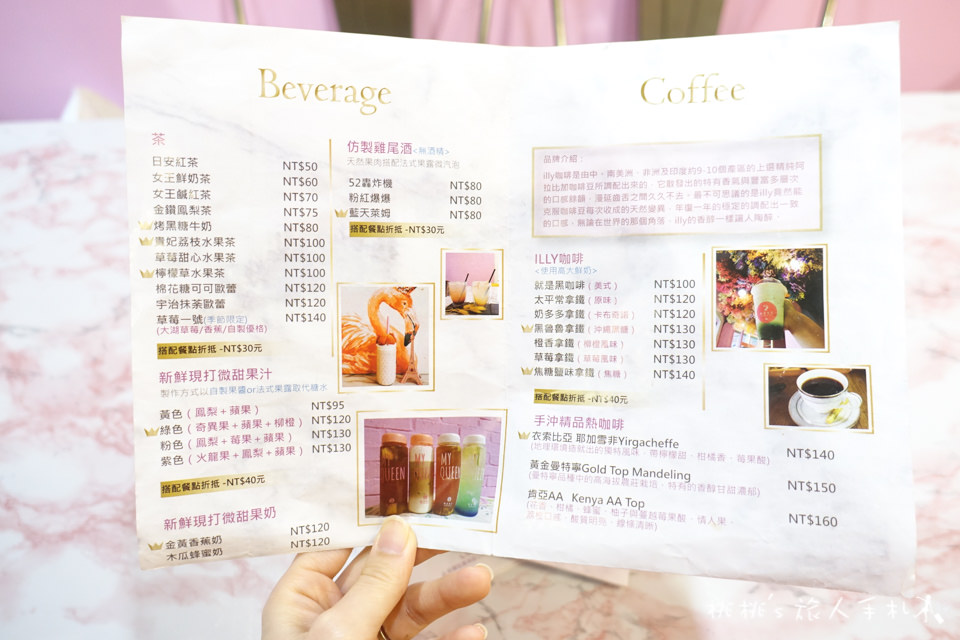 Beverage
茶
日安紅茶 NT$50
女王鮮奶茶 NT$60
女王鹹紅茶 NT$70
金鑽鳳梨茶 NT$75
烤黑糖牛奶 NT$80
貴妃荔枝水果茶 NT$100
草莓甜心水果茶 NT$100
檸檬草水果茶 NT$100
棉花糖可可歐蕾 NT$120
宇治抹茶歐蕾 NT$120
草莓一號(季節限定) NT$140
(大湖草莓/香蕉/自製優格)
搭配餐點折抵 -NT$30元
新鮮現打微甜果汁
製作方式以自製果露or法式果露取代糖水
黃色（鳳梨＋蘋果） NT$95
綠色（奇異果＋蘋果＋柳橙） NT$120
粉色（鳳梨＋莓果＋蘋果） NT$130
紫色（火龍果＋鳳梨＋蘋果） NT$130
搭配餐點折抵 -NT$40元
新鮮現打微甜果奶
金黃香蕉奶 NT$120
木瓜蜂蜜奶 NT$120
仿製雞尾酒<無酒精>
天然果肉搭配法式果露微汽泡
52轟炸機 NT$80
粉紅爆爆 NT$80
藍天萊姆 NT$80
搭配餐點折抵 -NT$30元
MY QUEEN
MY QUEEN
Coffee
品牌介紹：
illy咖啡是由中、南美洲、非洲及印度約9-10個產區的上選精純阿
拉比加咖啡豆所調配出來的，它散發出的特有香氣與豐富多層次
的口感綿韻，漫延齒舌之間久久不去。最不可思議的是illy竟然能
克服咖啡豆每次收成的天然變異，年復一年的穩定的調配出一致
的口感，無論在世界的那個角落，illy的香醇一樣讓人陶醉。
ILLY咖啡
<使用高大鮮奶>
就是黑咖啡（美式） NT$100
太平常拿鐵（原味） NT$120
奶多多拿鐵（卡布奇諾） NT$120
黑嚕嚕拿鐵（沖繩黑糖） NT$130
橙香拿鐵（柳橙風味） NT$130
草莓拿鐵（草莓風味） NT$130
焦糖鹽味拿鐵（焦糖） NT$140
搭配餐點折抵 -NT$40元
手沖精品熱咖啡
衣索比亞 耶加雪非Yirgacheffe
(地理環境造就出的獨特風味，帶檸檬甜、柑橘香、莓果酸) NT$140
黃金曼特寧Gold Top Mandeling
(曼特寧品種中的高海拔農莊栽培，特有的香醇甘甜濃郁) NT$150
肯亞AA Kenya AA Top
(花香、柑橘、蜂蜜、柚子與蔓越莓果酸、情人果、 NT$160
酸質明亮，線條清晰)
桃桃's旅人手札